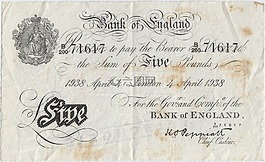 Bank of England
B/200 71617 I Promise to pay the Bearer B/200 71617
the Sum of Five Pounds
1938 April 4 London 4 April 1938
For the Gov.r and Comp.a of the
BANK OF ENGLAND.
Five
K O Peppiatt
Chief Cashier.